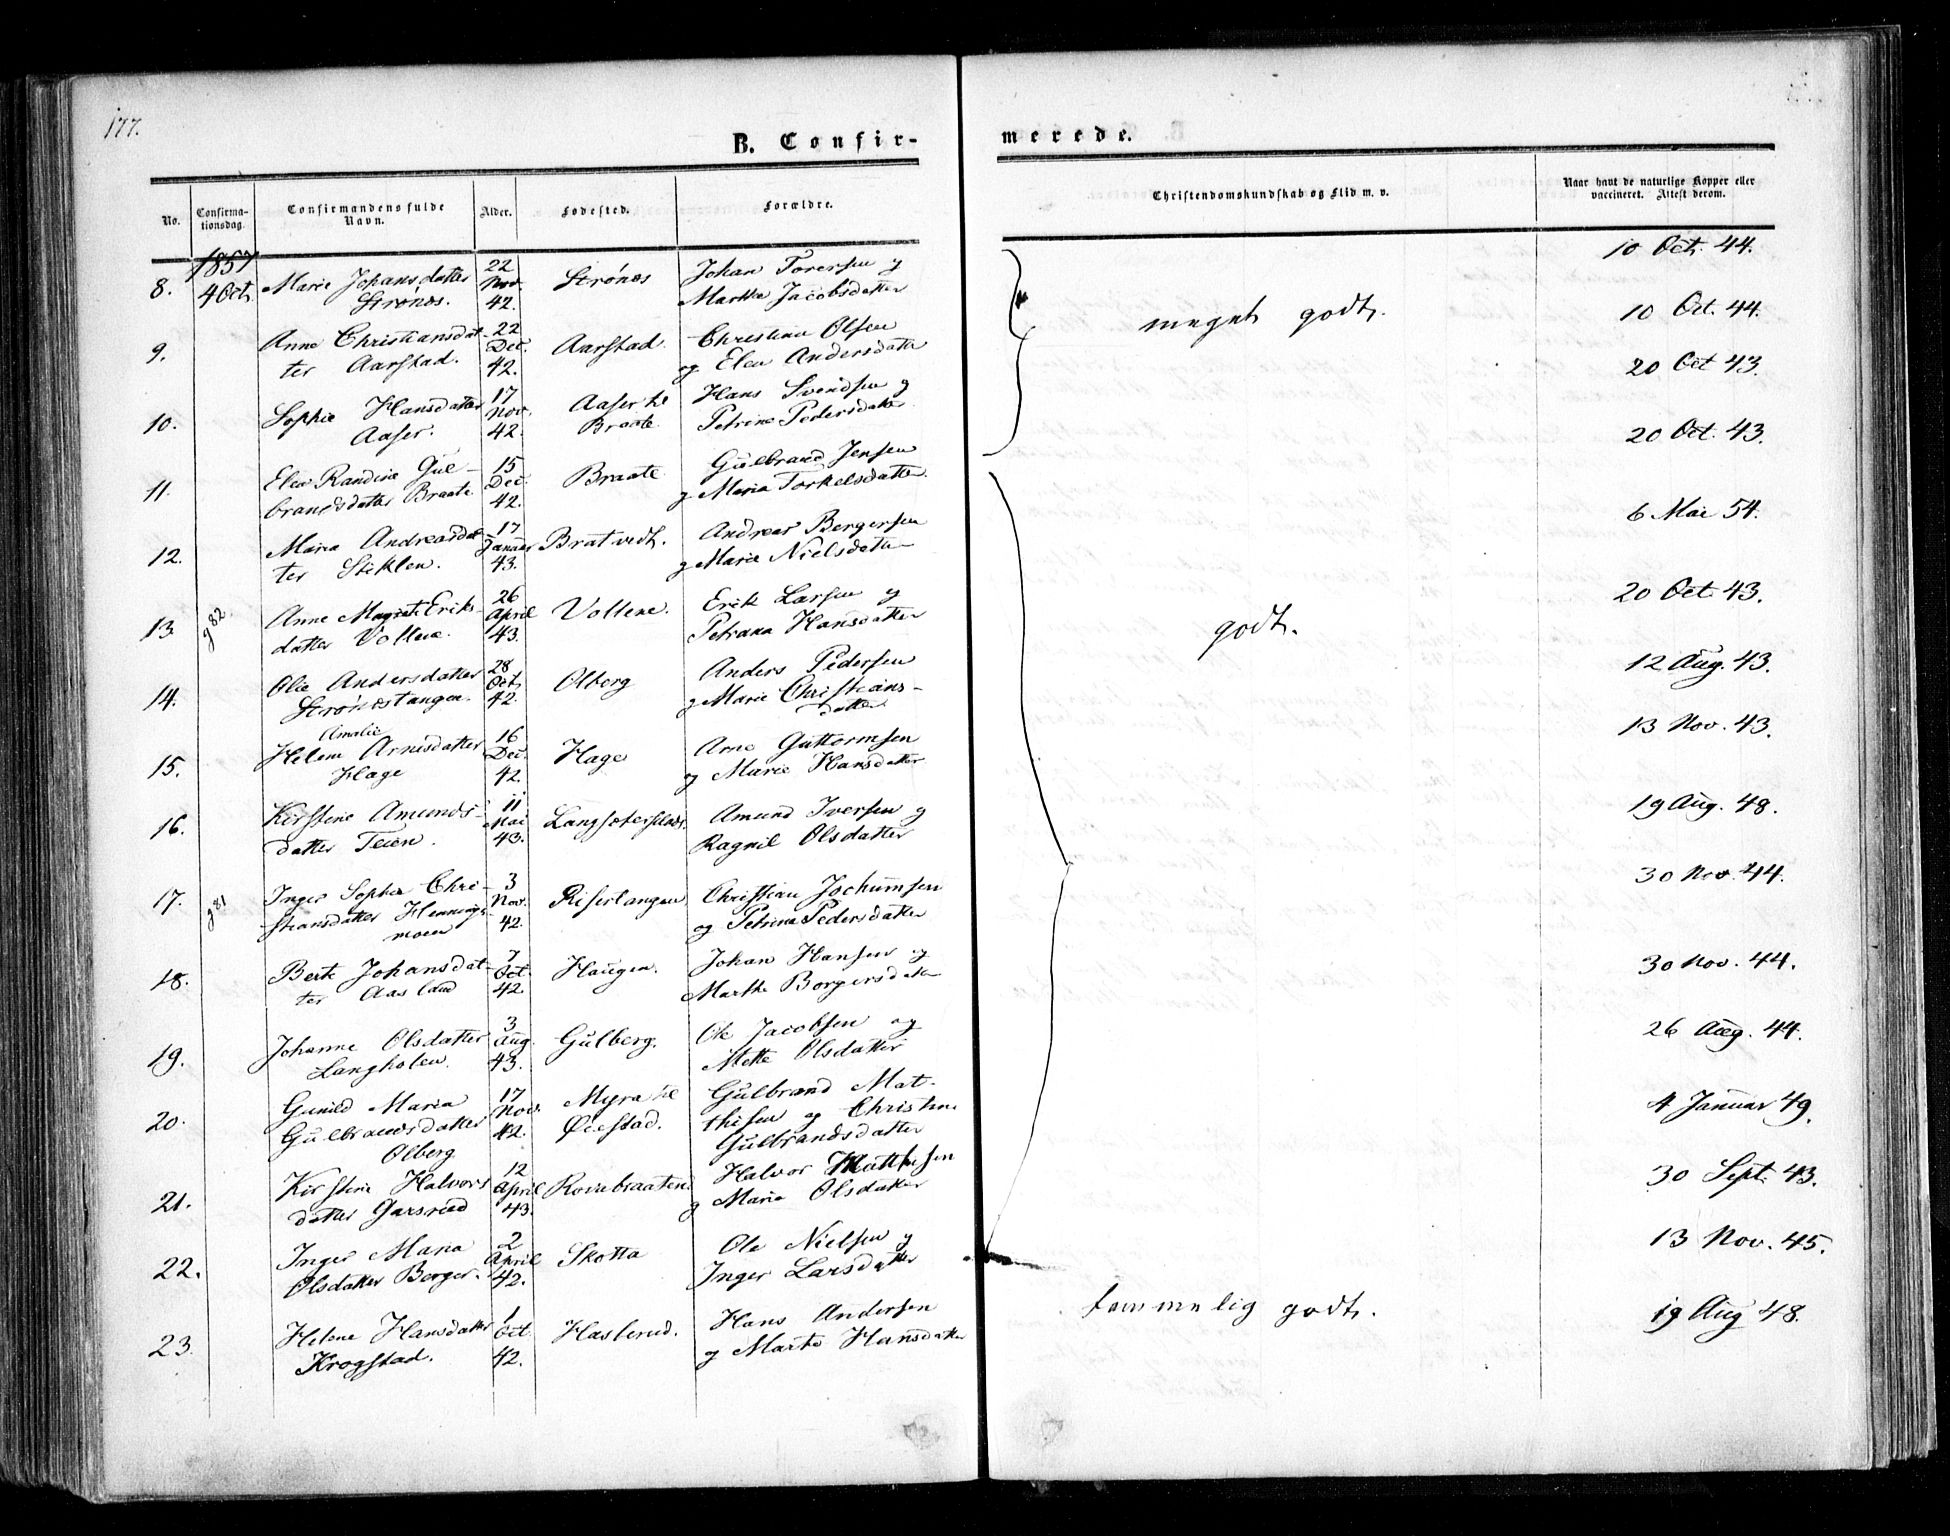 177.
B. Confir-
merede.
No.
Confirma-
tionsdag.
Confirmandens fulde
Navn.
Alder.
Fødested.
Forældre.
Christendomskundskab og Flid m. v.
Naar havt de naturlige Kopper eller
vaccineret. Attest derom.
1857
8. 4 Oct. Marie Johansdatter 22 Nov. 42. Strønes Johan Toresen og
Strønes. Marthe Jacobsdatter
10 Oct. 44.
9. Anne Christiansdat- 22 Dec. 42. Aarstad. Christian Olsen
ter Aarstad. og Elen Andersdatter
meget godt.
10 Oct. 44.
10. Sophie Hansdatter 17 Nov. 42. Aaser til Hans Svendsen og
Aaser. Braate. Petrine Pedersdatter
20 Oct 43.
11. Elen Randine Gul- 15 Dec. 42. Braate Gulbrand Jensen
brandsdatter Braate og Maria Torkelsdatter.
20 Oct. 43.
12. Maria Andreasdat- 17 Januar 43. Bratvedt. Andreas Bergersen
ter Stiklen. og Marie Nielsdatter
6 Mai 54.
13. g 82. Anne Magret. Eriks- 26 April 43. Vollene. Erik Larsen og
datter Vollene. Petrana Hansdatter
godt.
20 Oct. 43.
14. Olea Andersdatter 28 Oct. 42. Olberg Anders Pedersen
Strønestangen. og Marie Christians-
datter
12 Aug. 43.
Amalie
15. Helene Arnesdatter 16 Dec. 42. Hage Arne Guttormsen
Hage og Marie Hansdatter
13 Nov. 43.
16. Kirstine Amunds- 11 Mai 43. Amund Iversen og
datter Teien. Ragnil Olsdatter
19 Aug. 48.
17. g 81 Inger Sophie Chri- 3 Nov. 42. Risertangen Christian Jochumsen
stiansdatter Hennings- og Petrine Pedersdatter
moen
30 Nov. 44.
18. Berte Johansdat- 7 Oct. 42. Haugen. Johan Hansen og
ter Aasland Marthe Borgersdatter
30 Nov. 44.
19. Johanne Olsdatter 3 Aug. 43. Gulberg. Ole Jacobsen og
Langholen. Mette Olsdatter
26 Aug. 44.
20. Gunild Maria 17 Nov. 42. Myra til Gulbrand Mat-
Gulbrandsdatter Øiestad. thisen og Christine
Olberg Gulbrandsdatter
4 Januar 49.
21. Kirstine Halvors 12 April 43. Rovebraaten Halvor Matthisen
datter Garsrud og Maria Olsdatter
30 Sept. 43.
22. Inger Maria 2 April 42. Skotta Ole Nielsen og
Olsdatter Berger. Inger Larsdatter
13 Nov. 45.
23. Helene Hansdatter 1 Oct. 42. Haslerud. Hans Andersen
Krogstad. og Marte Hansdatter
temmelig godt.
19 Aug 48.